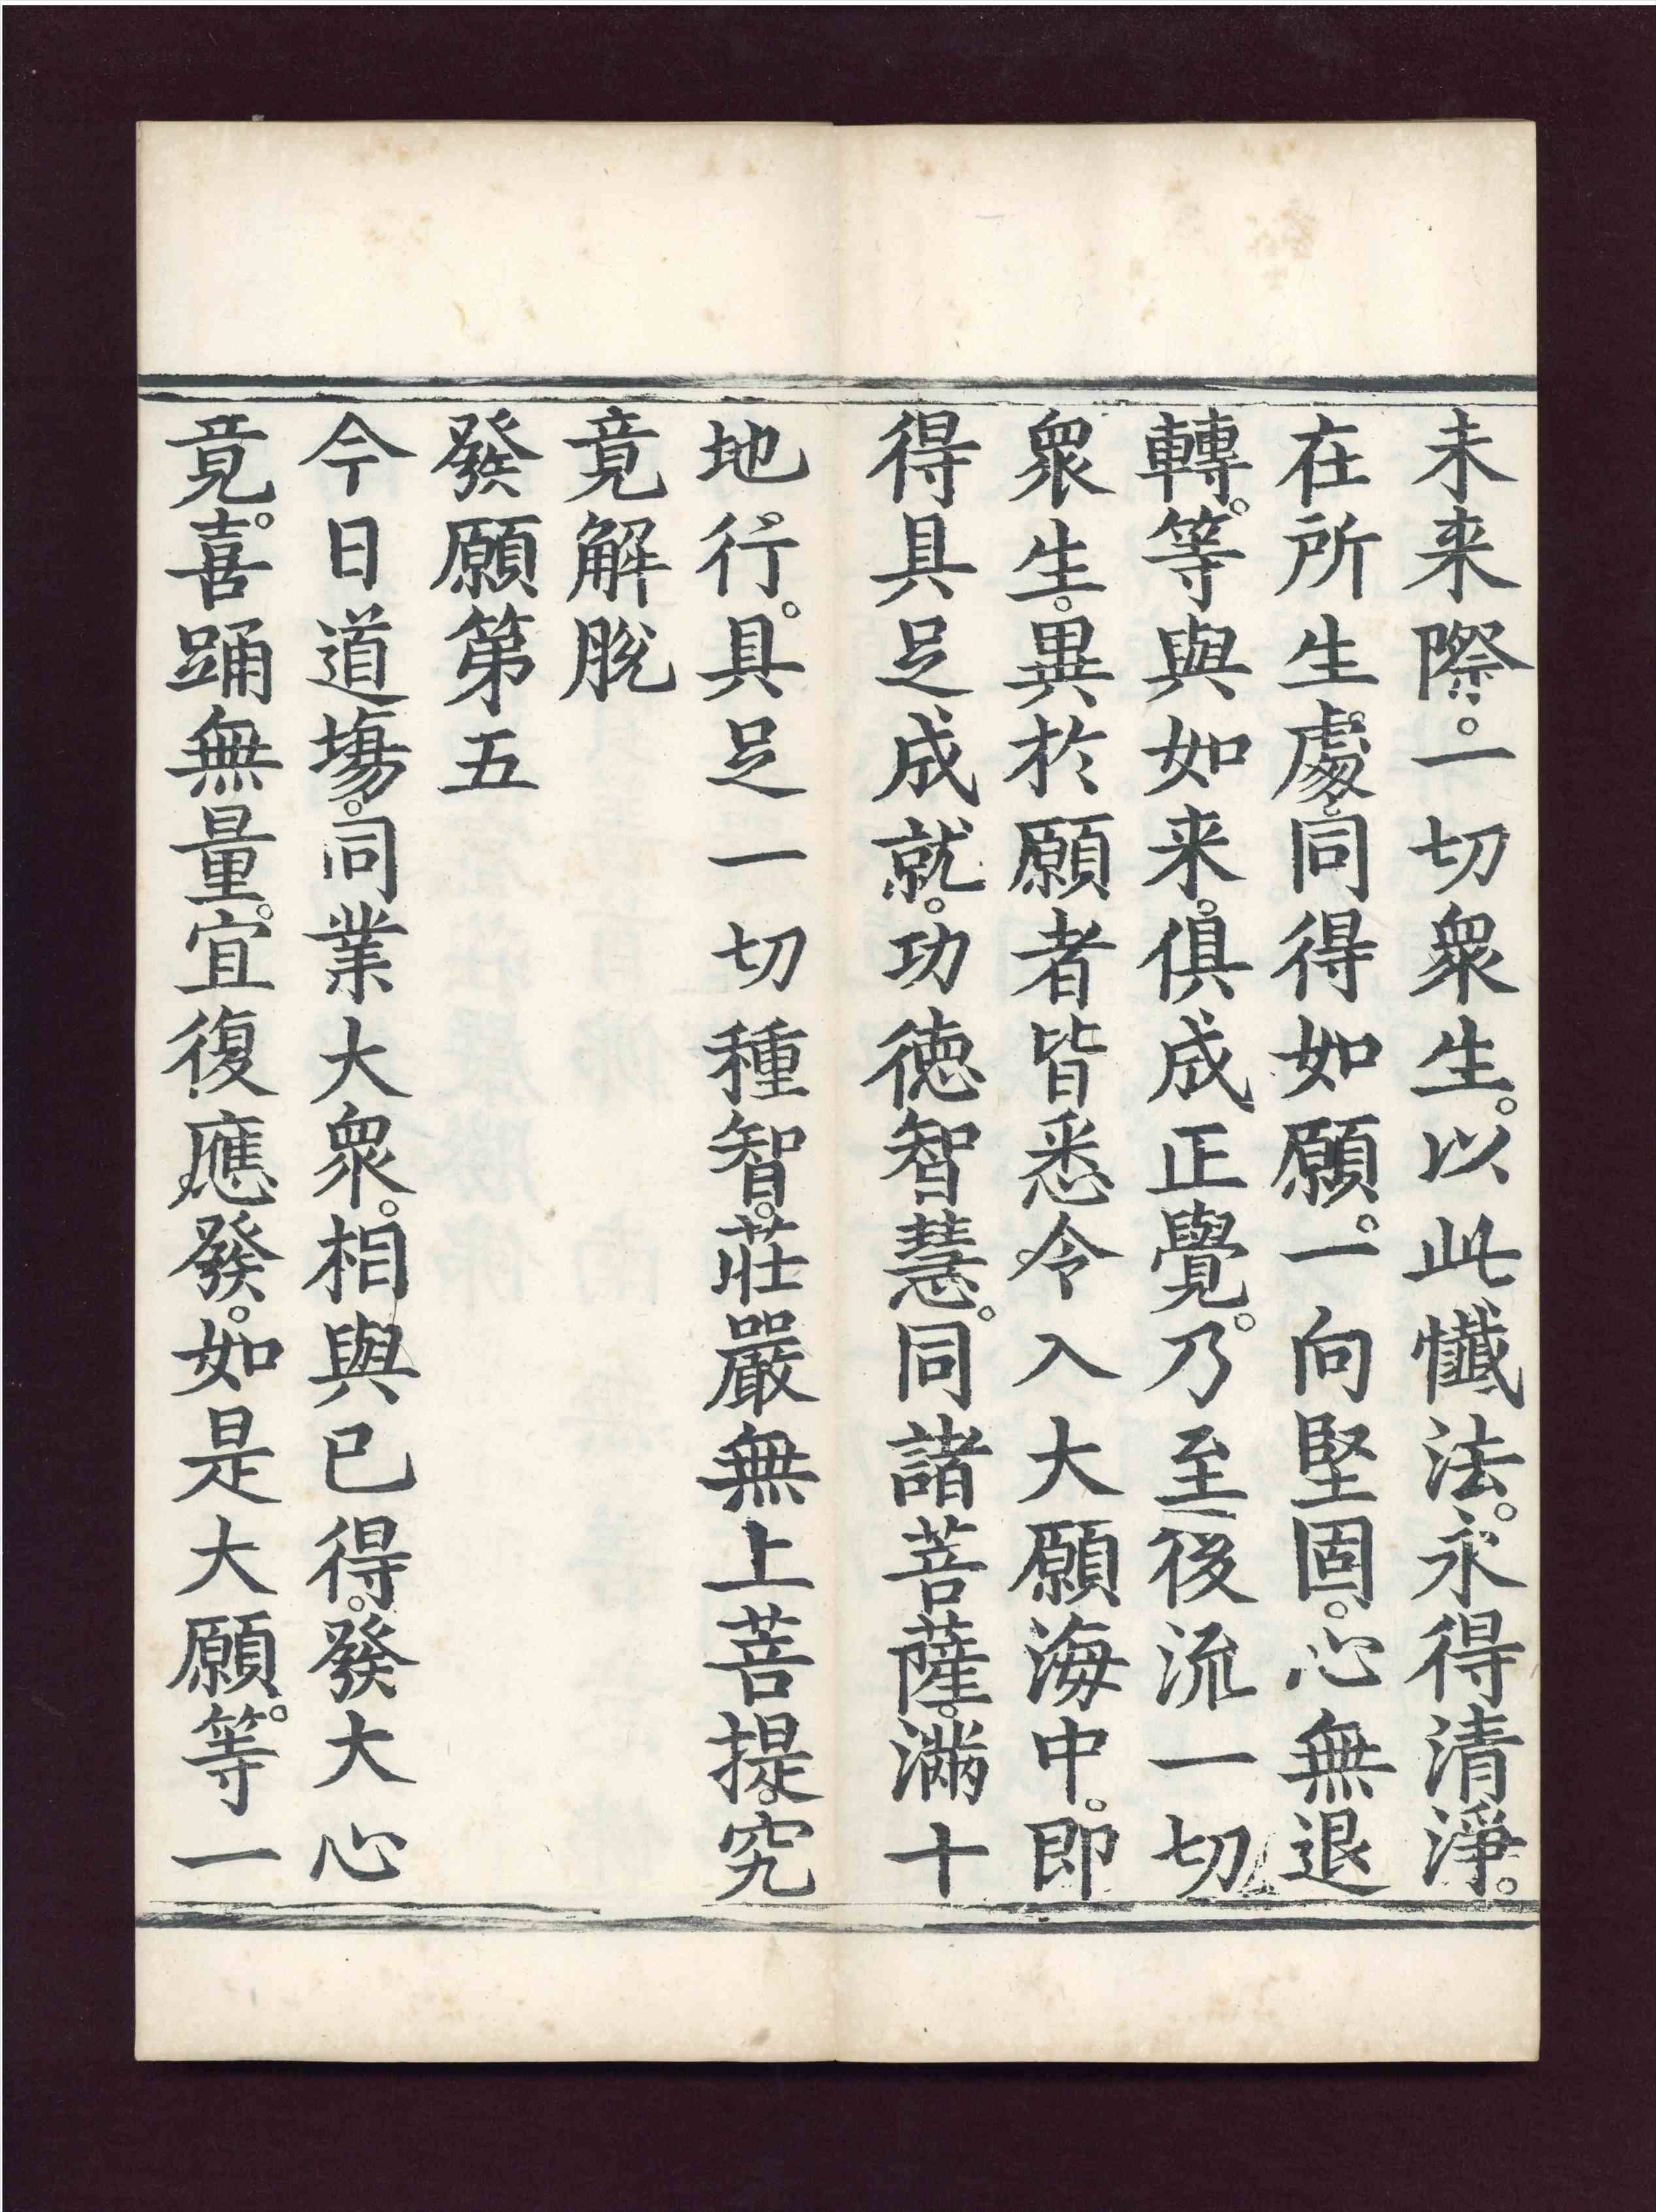 未来際。一切衆生。以此懺法。永得清淨。
在所生處。同得如願。一向堅固。心無退
轉。等與如来。俱成正覺。乃至後流一切
衆生。異於願者皆悉令入大願海中。即
得具足成就。功徳智慧。同諸菩薩。滿十
地行。具足一切種智。莊嚴無上菩提。究
竟解脫
發願第五
今日道場。同業大衆。相與已得。發大心
竟。喜踊無量。宜復應發。如是大願。等一